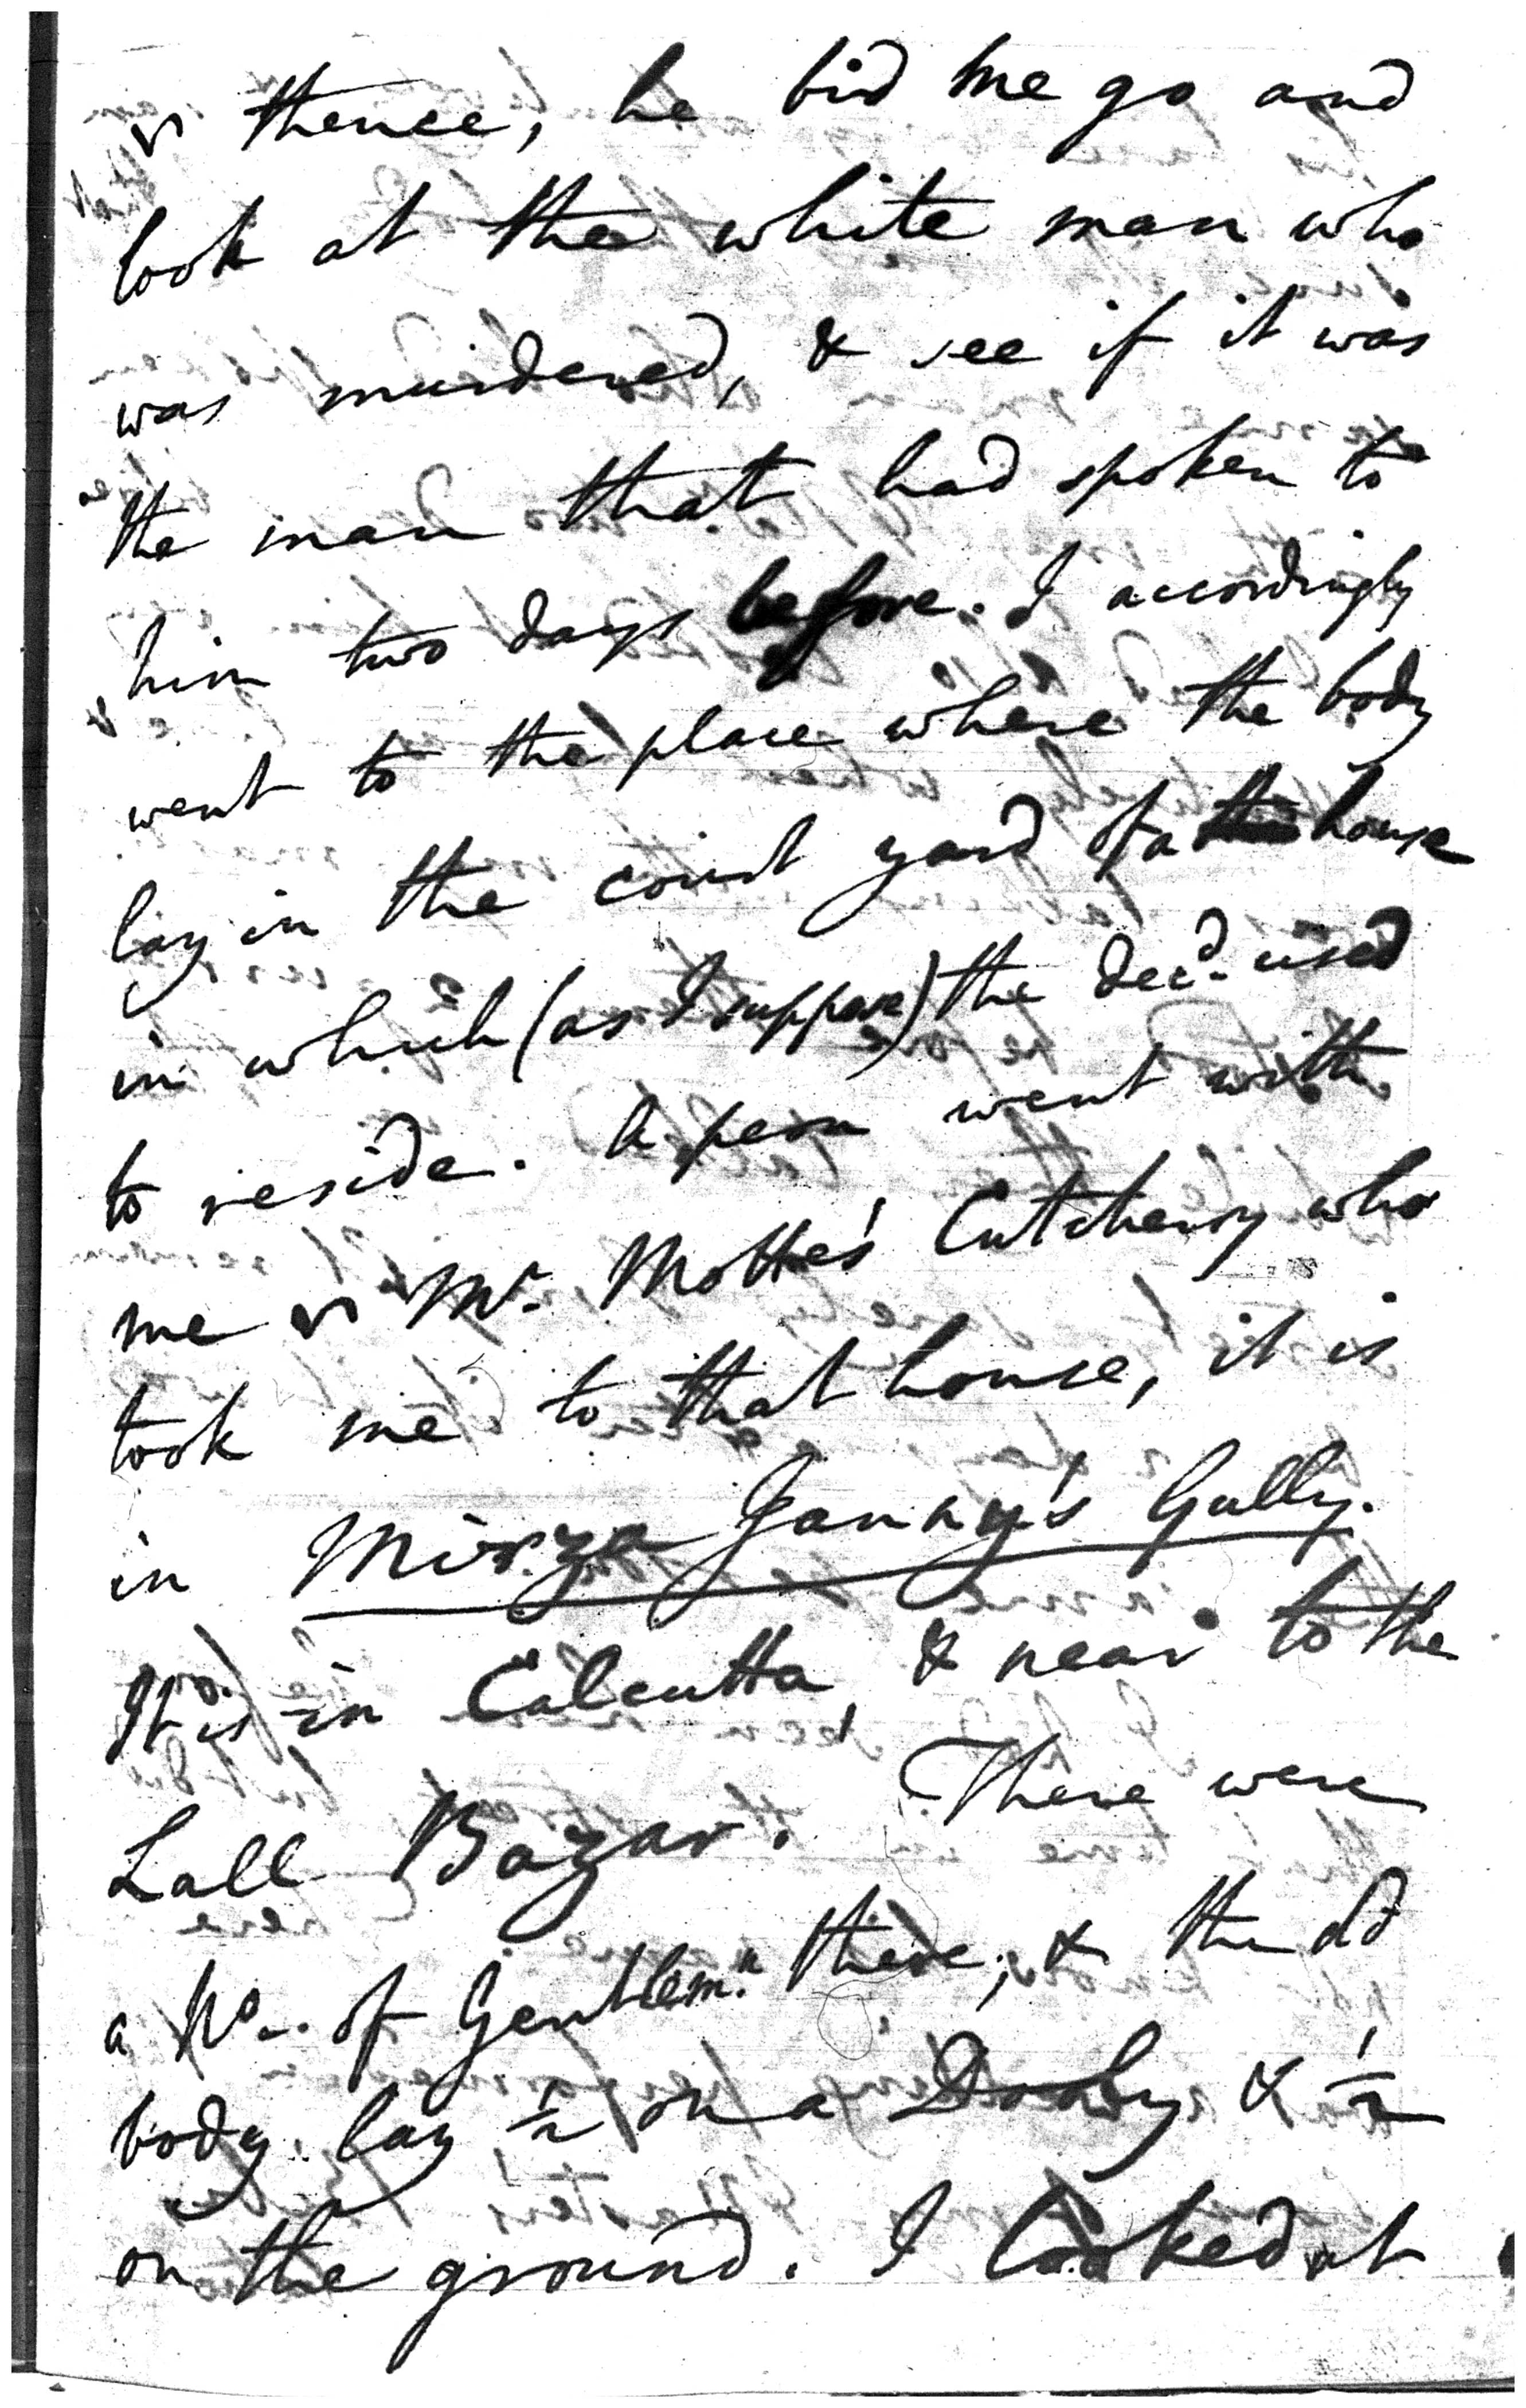 thence, he bid me go and
look at the white man who
was murdered, & see if it was
the man that had spoken to
him two days before. I accordingly
went to the place where the body
lay in the court yard of a the house
in which (as I suppose) the decd. used
to reside. A person went with
me Mr. Motte's Cutcherry who
took me to that house, it is
in Mirza Janny's Gully.
It is in Calcutta, & near to the
Lall Bazar. There were
a No. of Gentlemn. there; & the
body lay ½ on a Dooly & ½
on the ground. I looked at